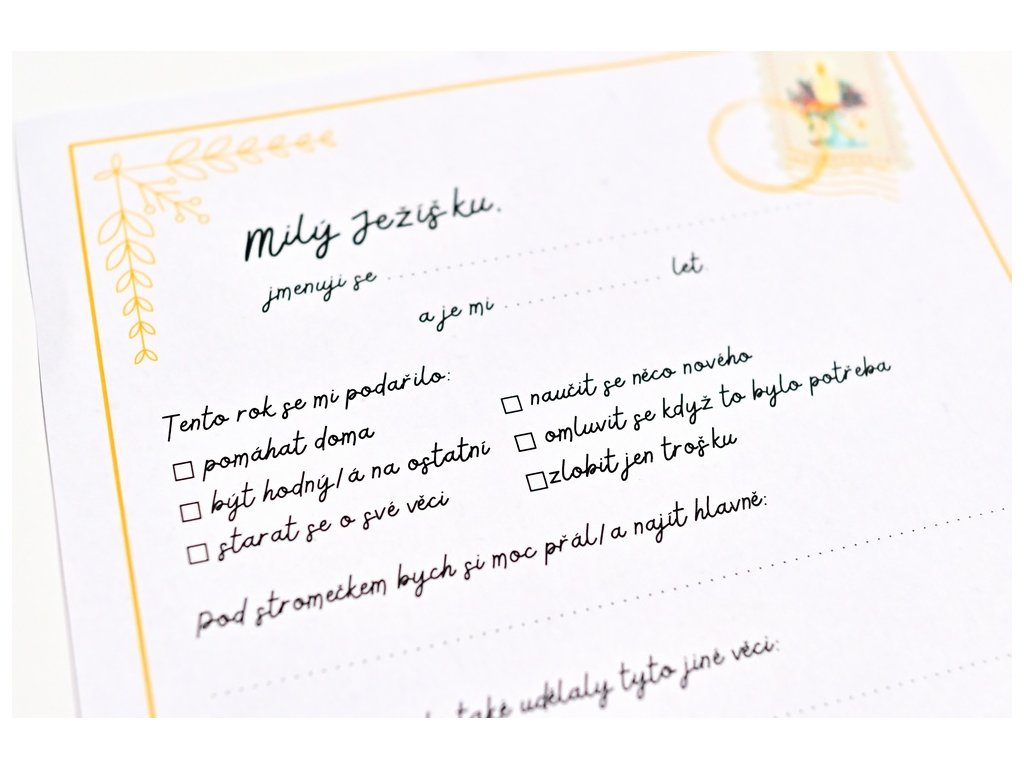 Milý Ježíšku,
jmenuji se ........................................
a je mi .................... let.
Tento rok se mi podařilo:
☐ pomáhat doma
☐ být hodný/á na ostatní
☐ starat se o své věci
☐ naučit se něco nového
☐ omluvit se když to bylo potřeba
☐ zlobit jen trošku
Pod stromečkem bych si moc přál/a najít hlavně:
také udělaly tyto jiné věci: